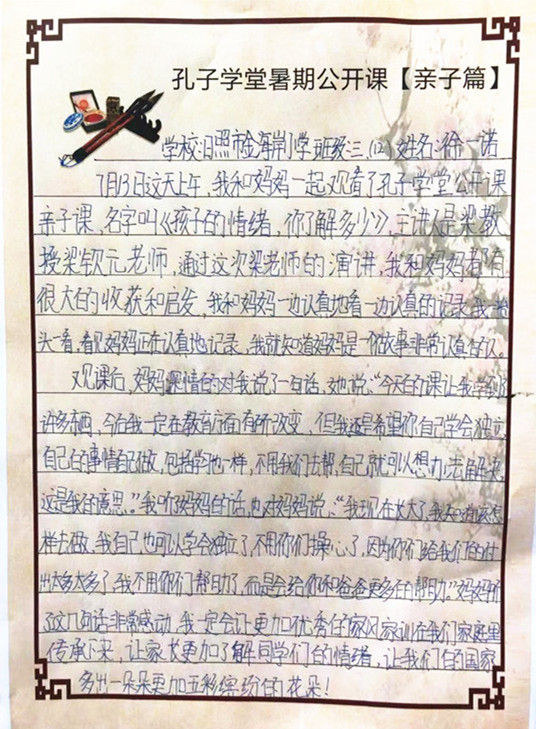 孔子学堂暑期公开课【亲子篇】
学校:日照市金海岸小学 班级:三、(12) 姓名:徐一诺
7月13日这天上午,我和妈妈一起观看了孔子学堂公开课
亲子课,名字叫《孩子的情绪,你了解多少》,主讲人是梁教
授梁钦元老师,通过这次梁老师的演讲,我和妈妈都有
很大的收获和启发,我和妈妈一边认真地看一边认真的记录,我一抬
头一看,看见妈妈正在认真地记录,我就知道妈妈是一个做事非常认真的人。
观课后,妈妈深情的对我说了一句话,她说:“今天的课让我学到了
许多东西,今后我一定在教育方面有所改变,但我还是希望你自己学会独立,
自己的事情自己做,包括学习也一样,不用我们去帮,自己就可以想办法去解决,
这是我的意思。”我听妈妈的话,也对妈妈说:“我现在长大了,我知道该怎
样去做,我自己也可以学会独立了,不用你们操心了,因为你们给我们的付
出太多太多了,我不用你们帮助了,而是会给你和爸爸更多的帮助。”妈妈听
了这几句话非常感动,我一定会让更加优秀的家风家训在我们家庭里
传承下来,让家长更加了解同学们的情绪,让我们的国家
多出一朵朵更加五彩缤纷的花朵!